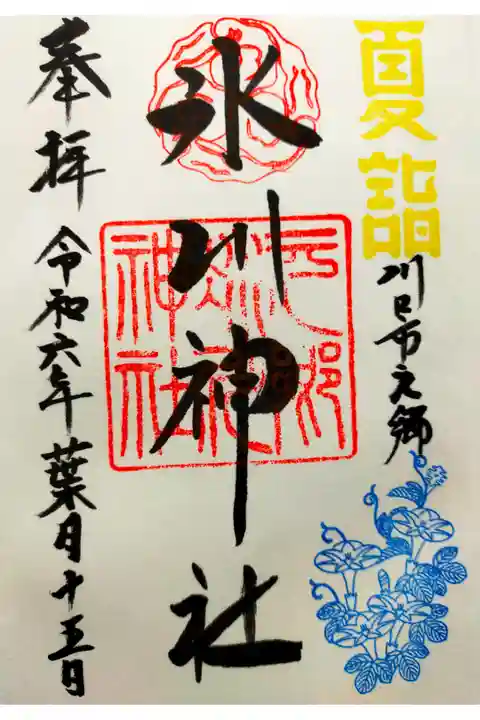 夏詣
川口市元郷
氷川神社
元郷
氷川
神社
奉拝
令和六年葉月十五日